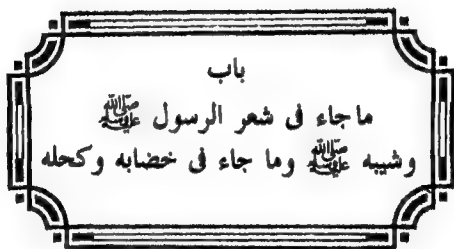 باب
ما جاء فى شعر الرسول ﷺ
وشيبه ﷺ وما جاء فى خضابه وكحله